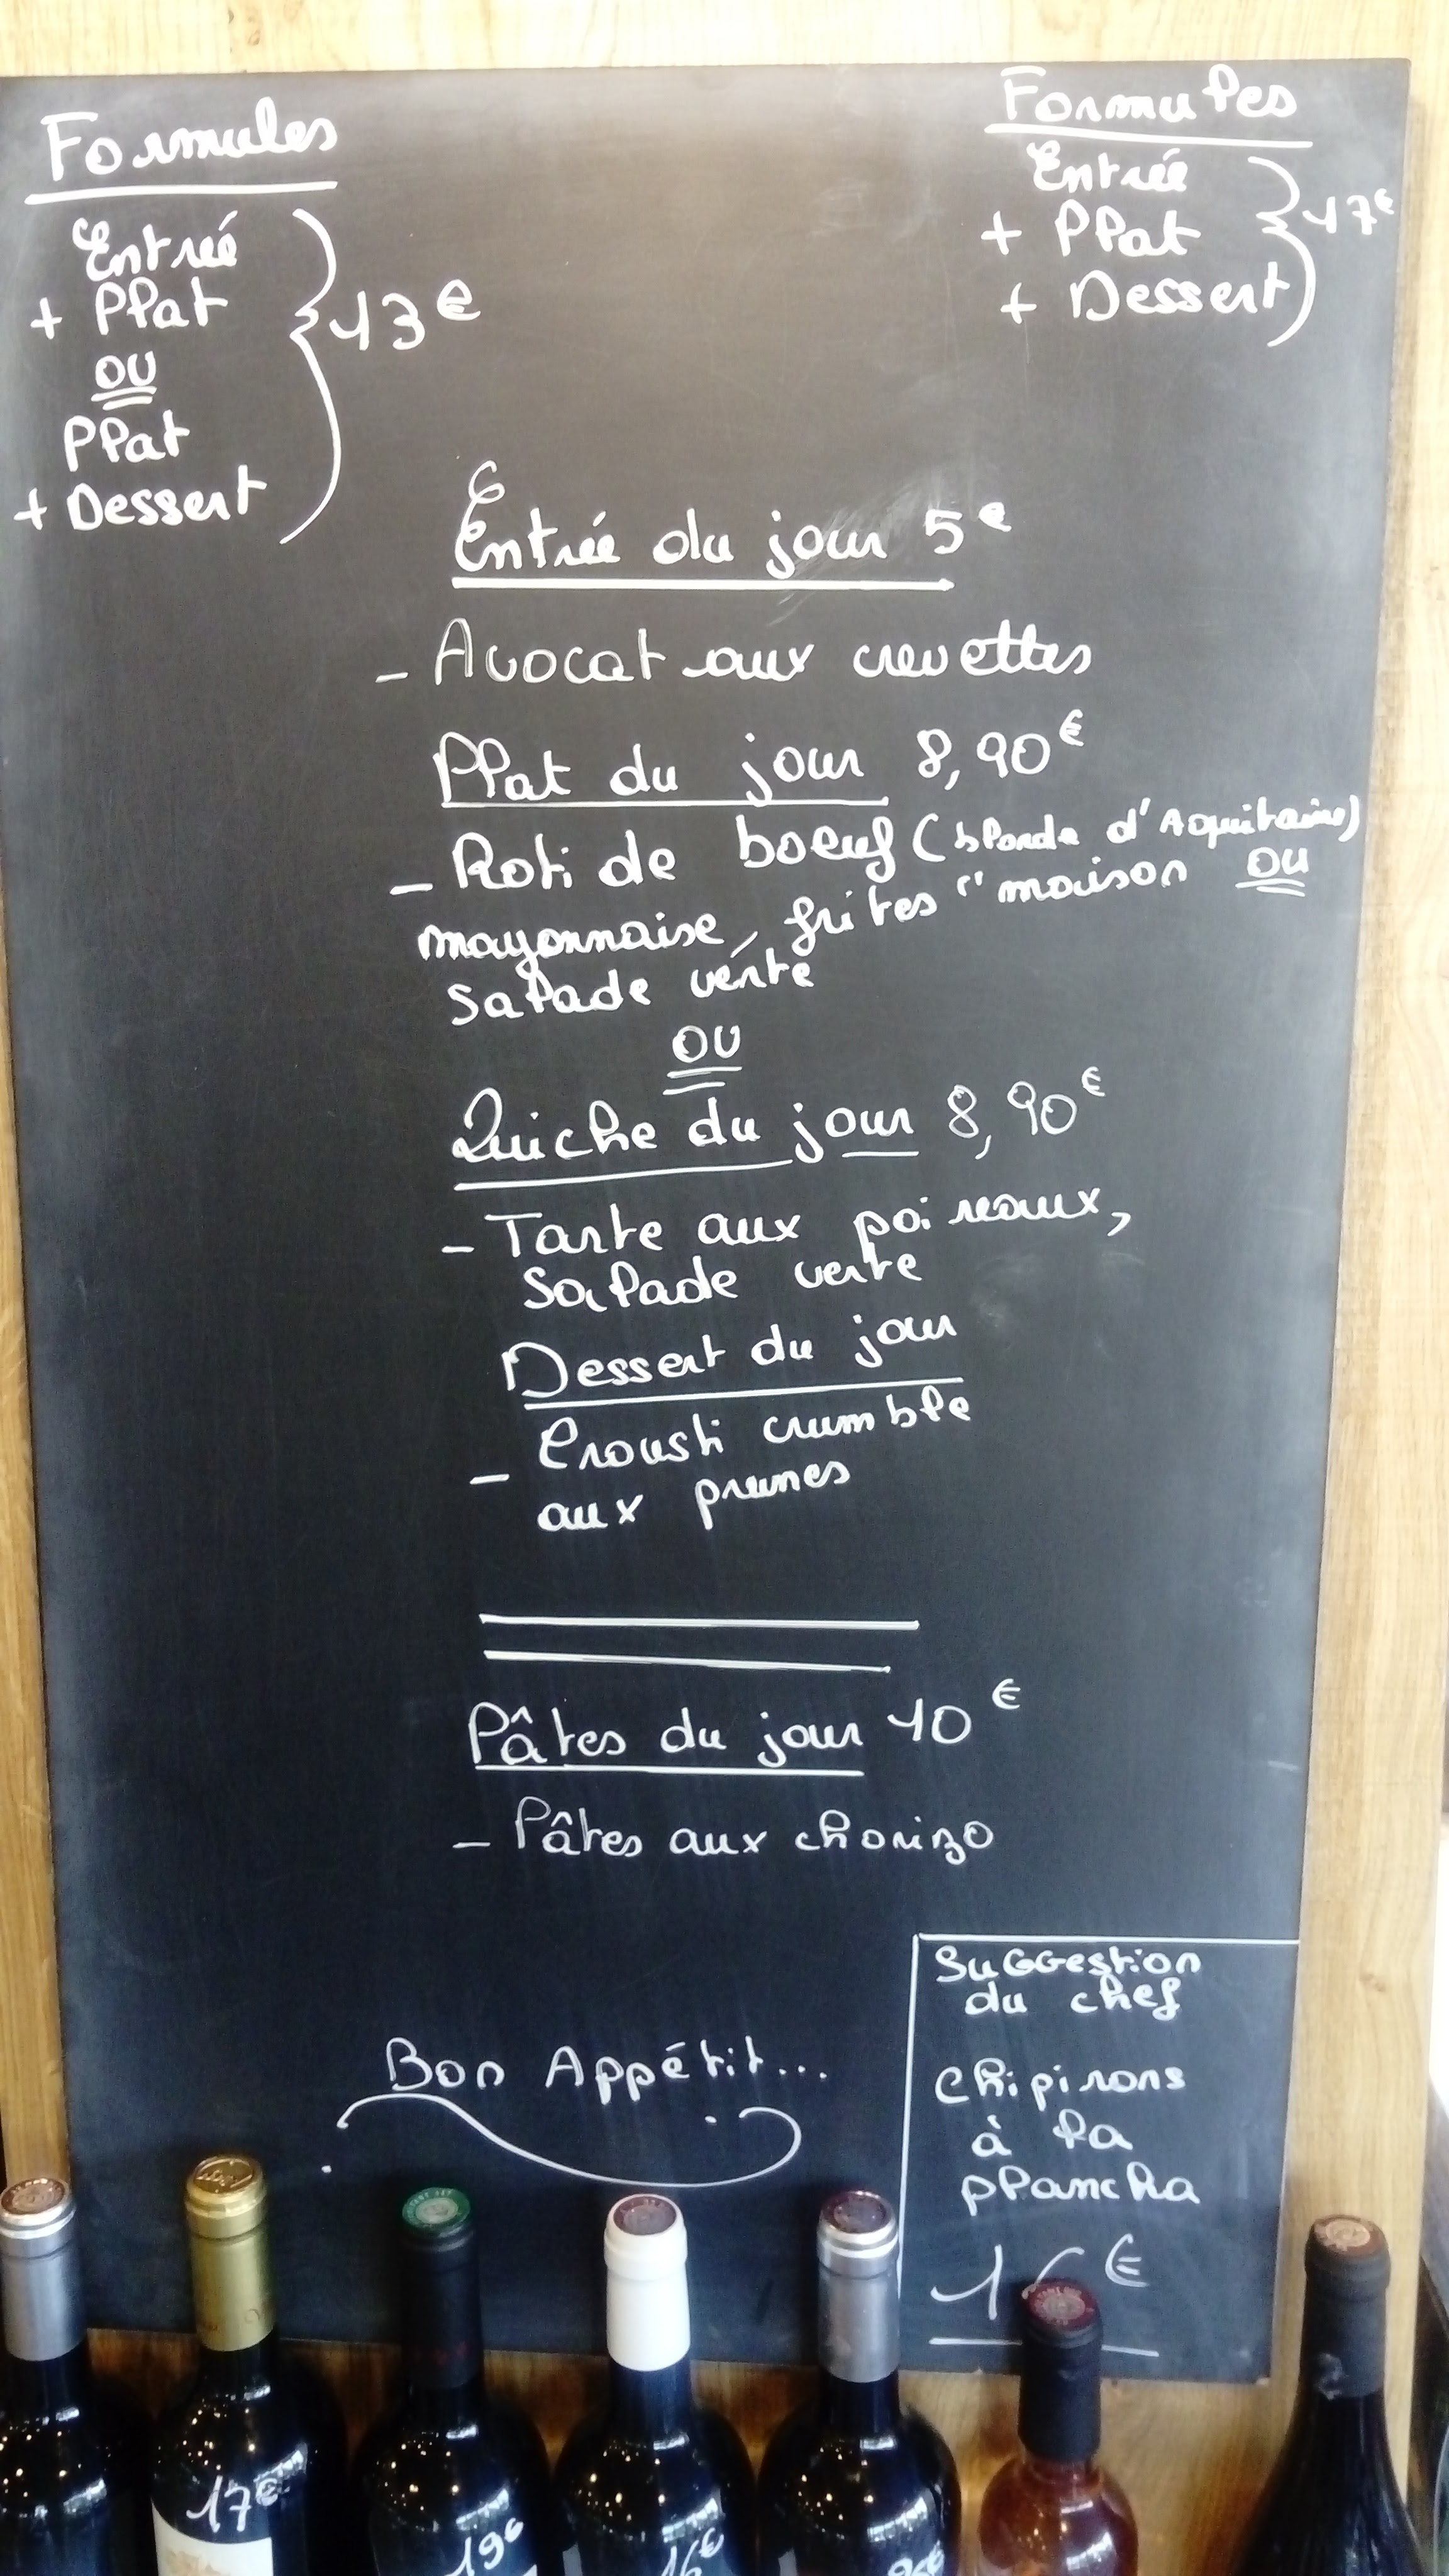 Formules
Entrée
+ Plat
OU
Plat
+ Dessert
13€
Formules
Entrée
+ Plat
+ Dessert
17€
Entrée du jour 5€
- Avocat aux crevettes
Plat du jour 8,90€
- Roti de boeuf (blonde d'Aquitaine)
mayonnaise, frites "maison OU
Salade verte
OU
Quiche du jour 8,90€
- Tarte aux poireaux,
Salade verte
Dessert du jour
- Crousti crumble
aux prunes
Pâtes du jour 10€
- Pâtes aux chorizo
Suggestion
du chef
Chipirons
à la
plancha
€
Bon Appétit...
17€
19€
16€